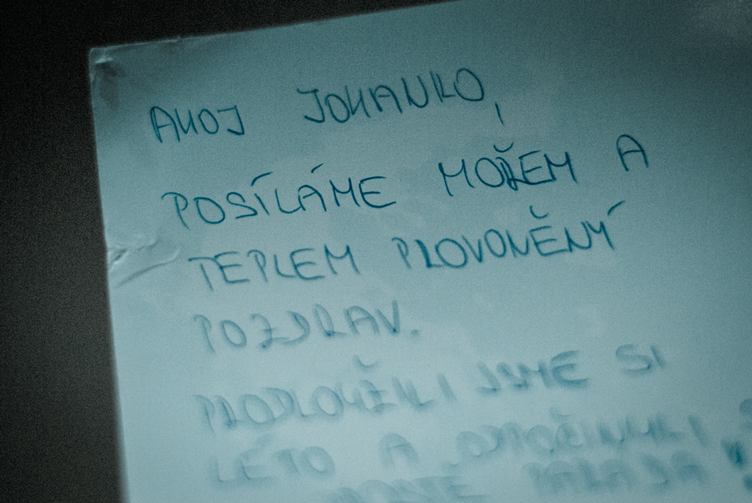 AHOJ JOHANKO,
POSÍLÁME MOŘEM A
TEPLEM PROVONĚNÝ
POZDRAV.
PRODLOUŽILI JSME SI
LÉTO A